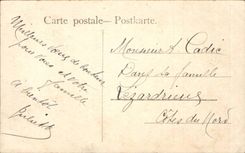 Carte postale — Postkarte.
Meilleurs vœux de bonheur
pour vous et votre
famille
à bientôt
Monsieur A Cadic
Dans sa famille
Lézardrieux
Côtes du Nord